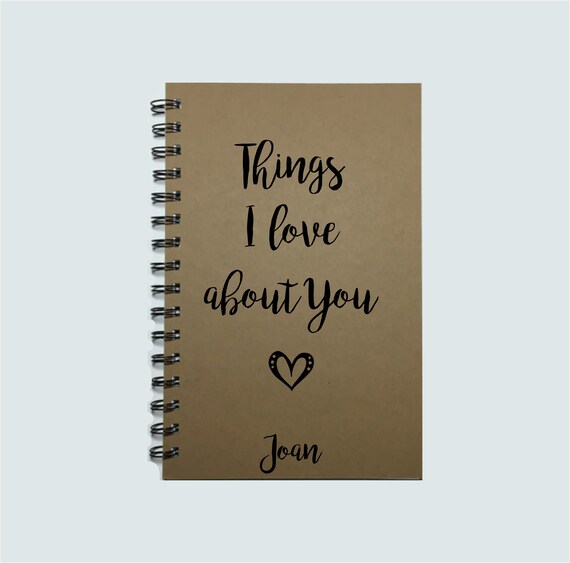 Things
I love
about You
Joan